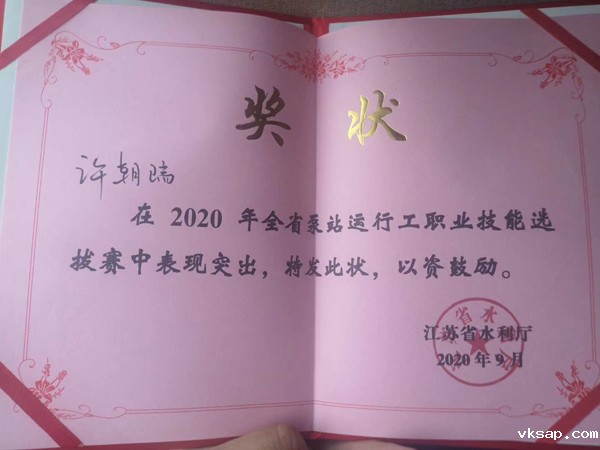 奖 状
许朝瑞
在 2020 年全省泵站运行工职业技能选
拔赛中表现突出，特发此状，以资鼓励。
江苏省水利厅
2020年9月
vksap.com